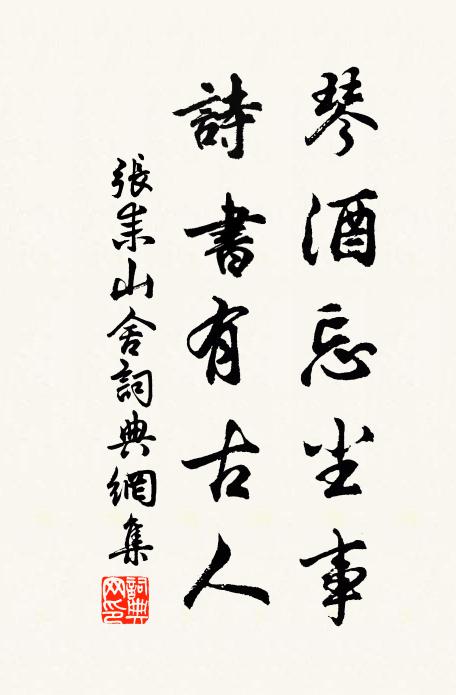 琴酒忘尘事
詩書有古人
張耒山舍詞典網集
詞典
网印